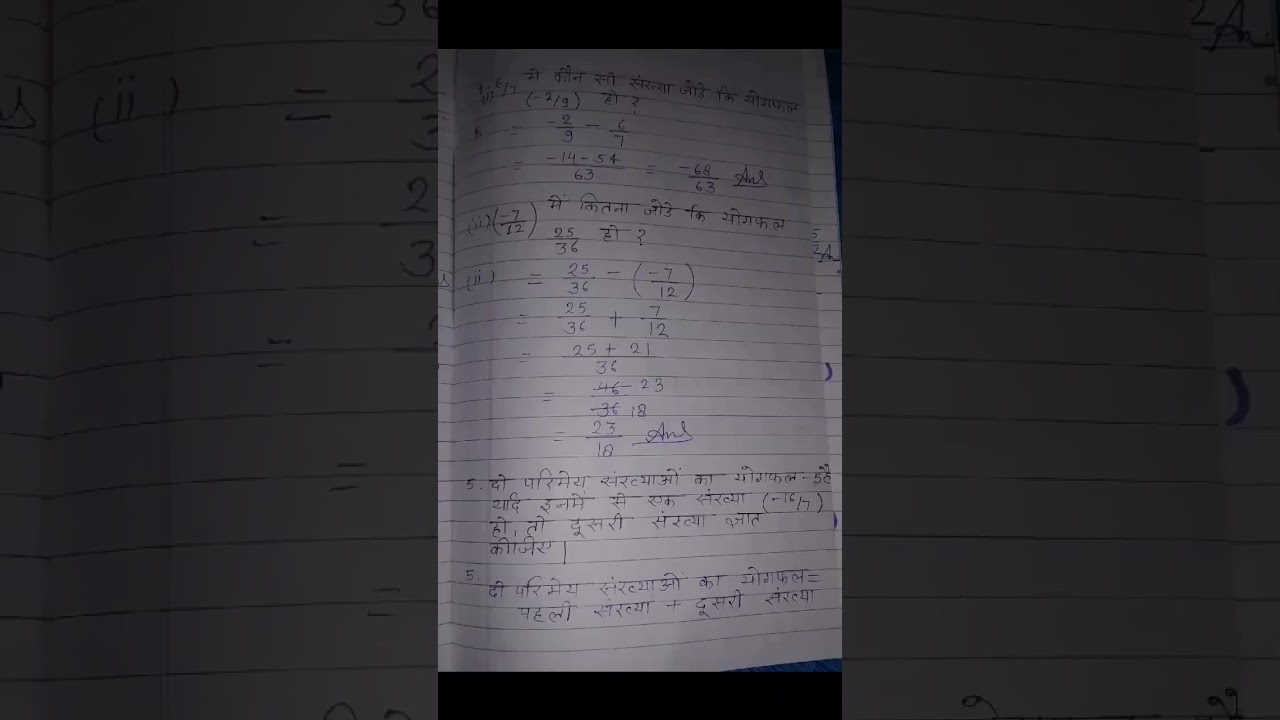 4. (i) 6/7 में कौन सी संख्या जोड़े कि योगफल
(-2/9) हो ?
= -2/9 - 6/7
= -14-54/63 = -68/63 Ans
(ii) (-7/12) में कितना जोड़े कि योगफल
25/36 हो ?
(ii) = 25/36 - (-7/12)
= 25/36 + 7/12
= 25 + 21/36
= 46 23/36 18
= 23/18 Ans
5. दो परिमेय संख्याओं का योगफल -5 है
यदि इनमें से एक संख्या (-16/7)
हो, तो दूसरी संख्या ज्ञात
कीजिए |
5. दो परिमेय संख्याओं का योगफल =
पहली संख्या + दूसरी संख्या